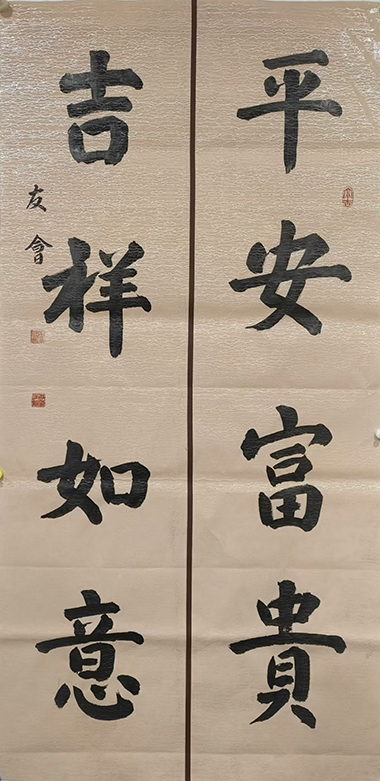 平安富貴
吉祥如意
友會